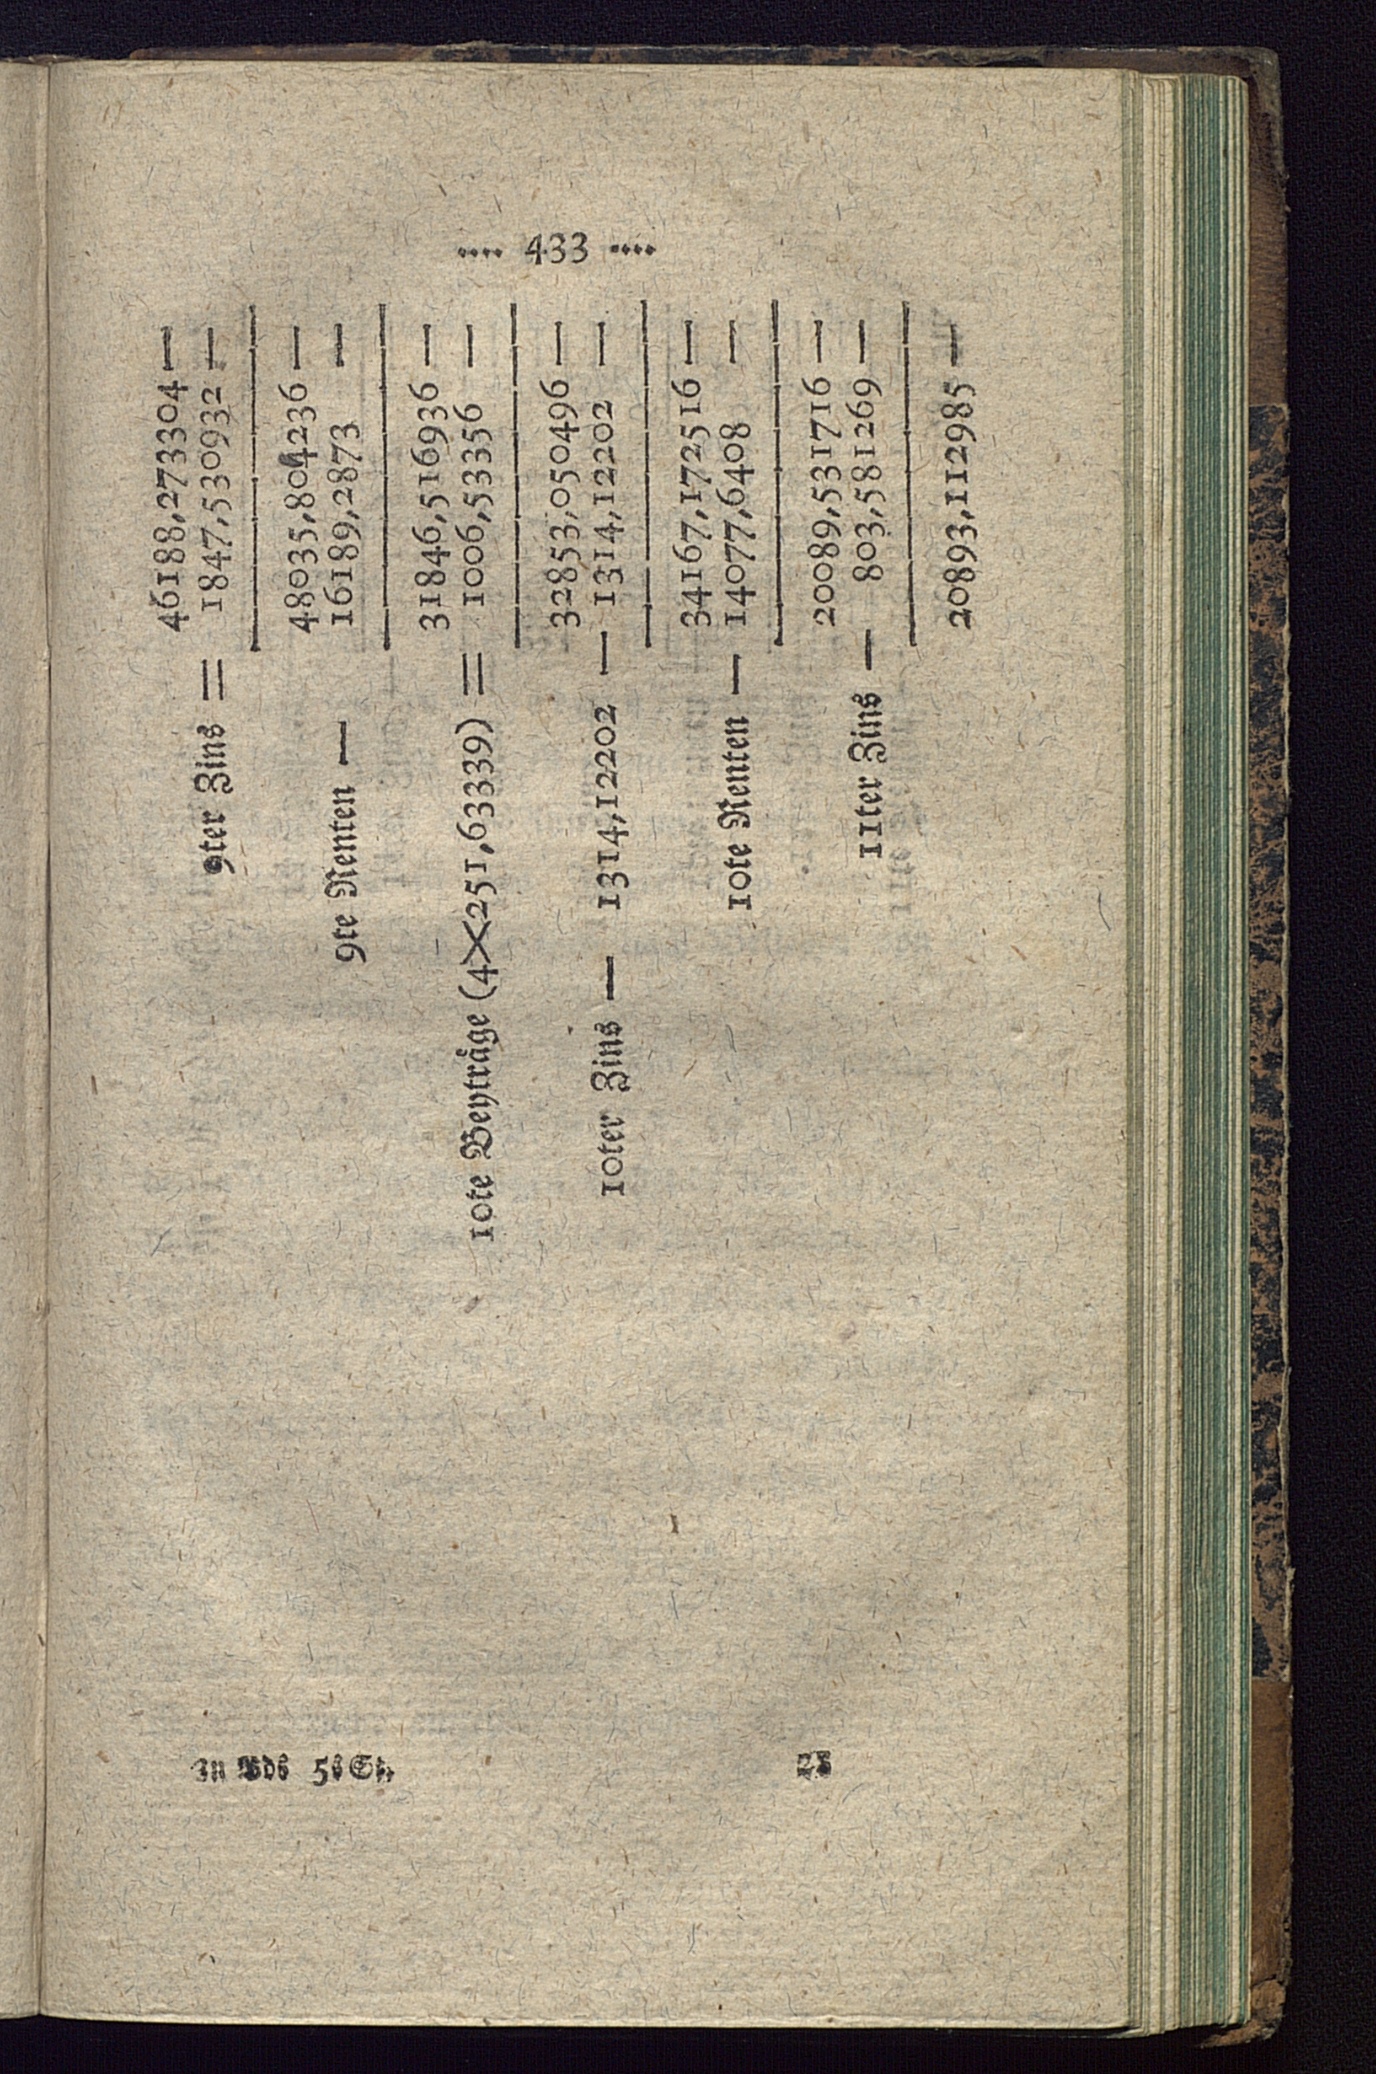 ···· 433 ····
46188,273304 —
9ter Zins = 1847,530932 —
48035,804236 —
9te Renten — 16189,2873 —
31846,516936 —
10te Beyträge (4×251,63339) = 1006,53356 —
32853,050496 —
10ter Zins — 1314,12202 — 1314,12202 —
34167,172516 —
10te Renten — 14077,6408 —
20089,531716 —
11ter Zins — 803,581269 —
20893,112985 —
Bds 5s St. 28